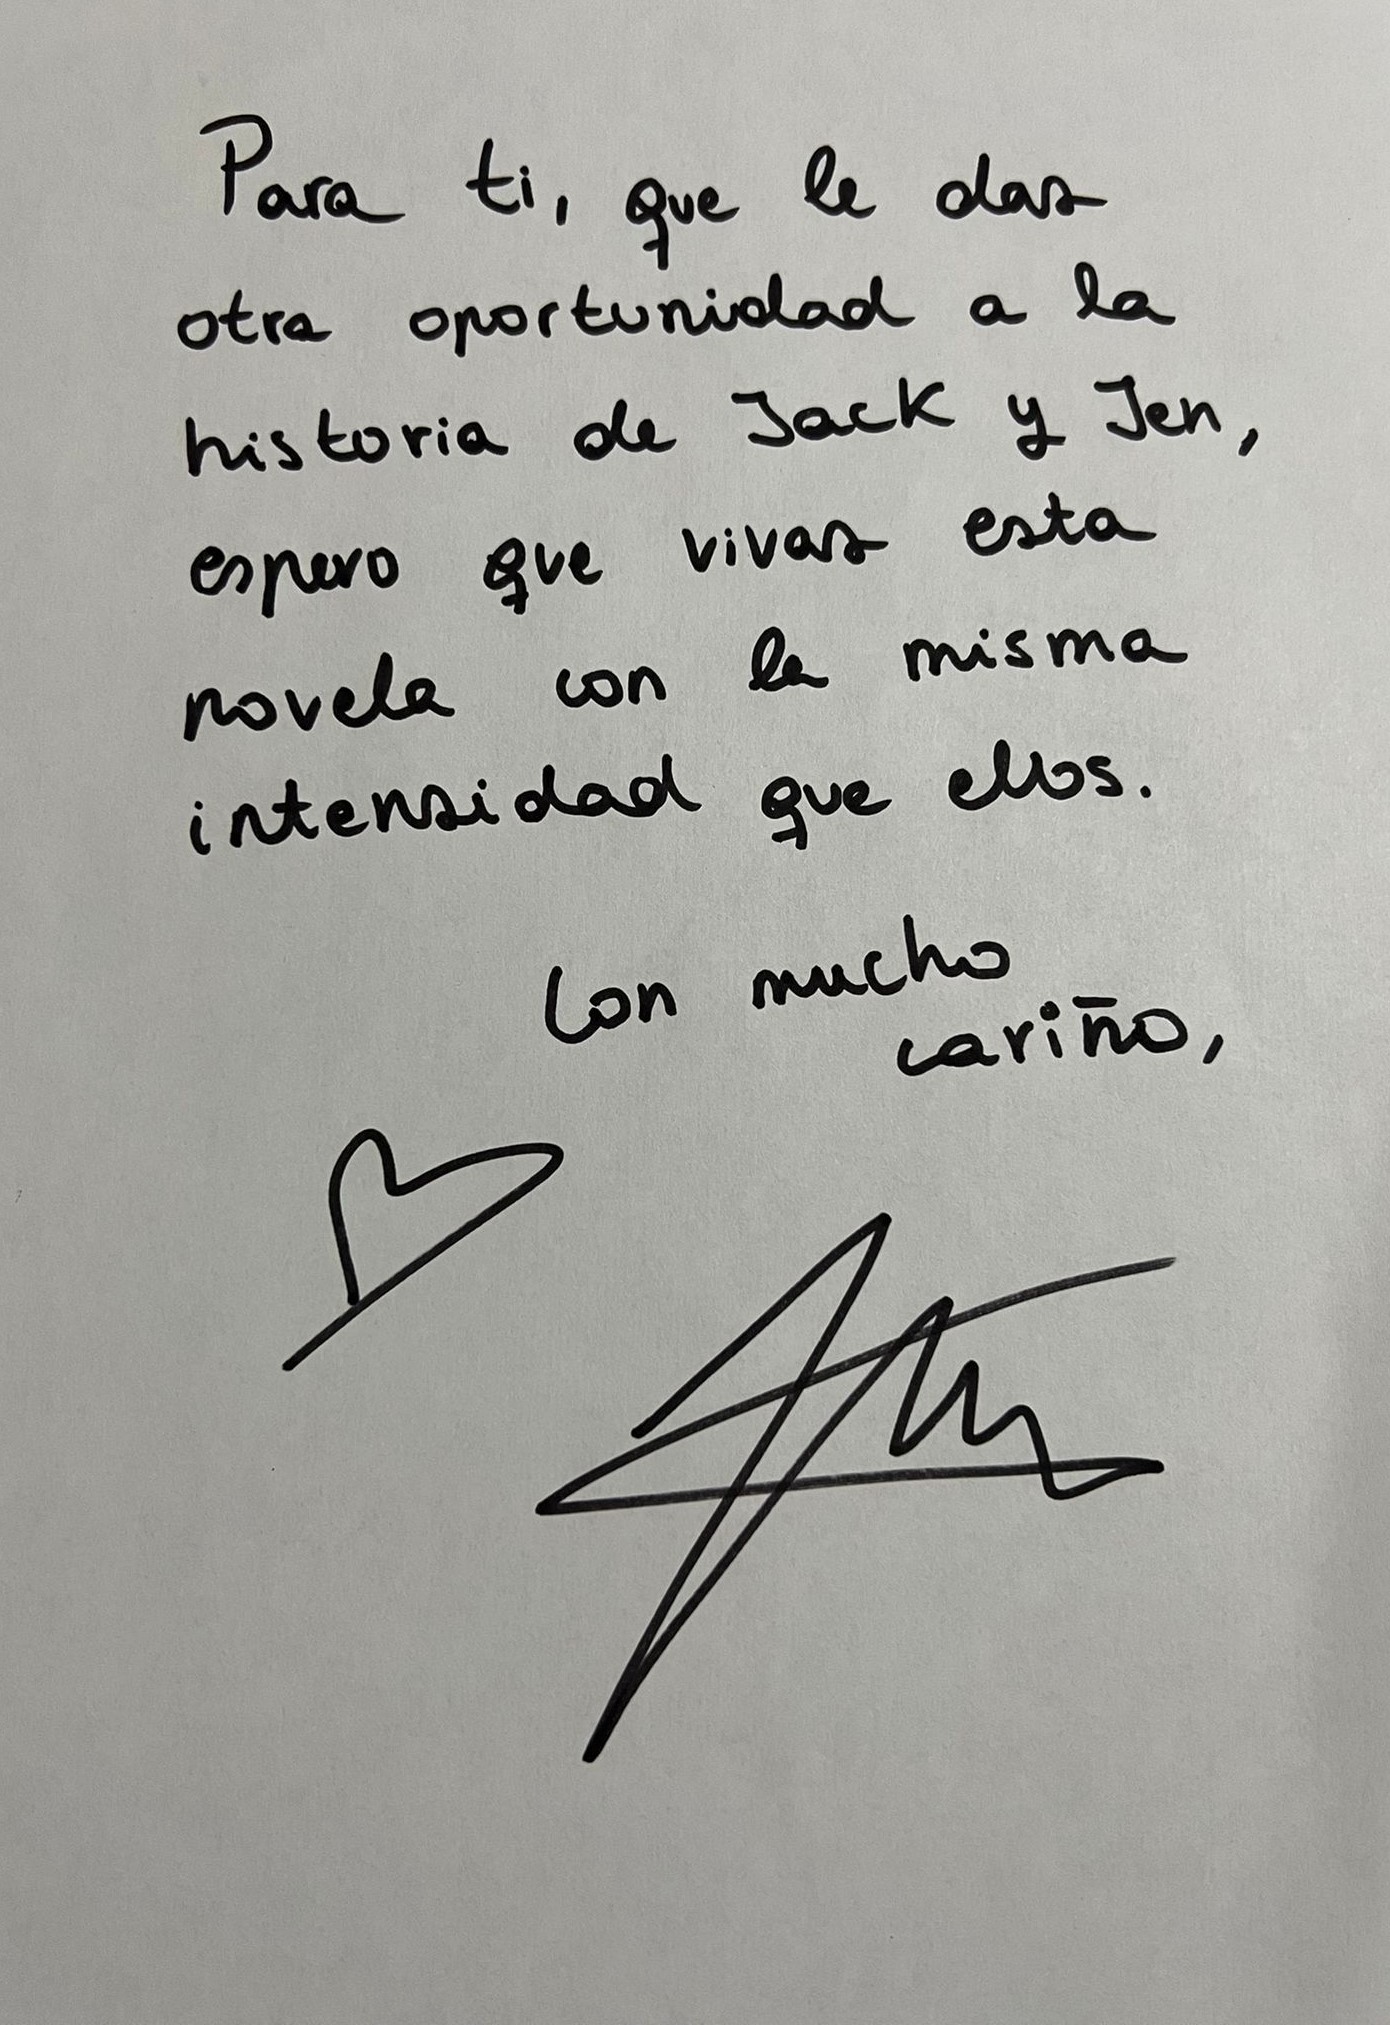 Para ti, que le das
otra oportunidad a la
historia de Jack y Jen,
espero que vivas esta
novela con la misma
intensidad que ellos.
Con mucho
cariño,